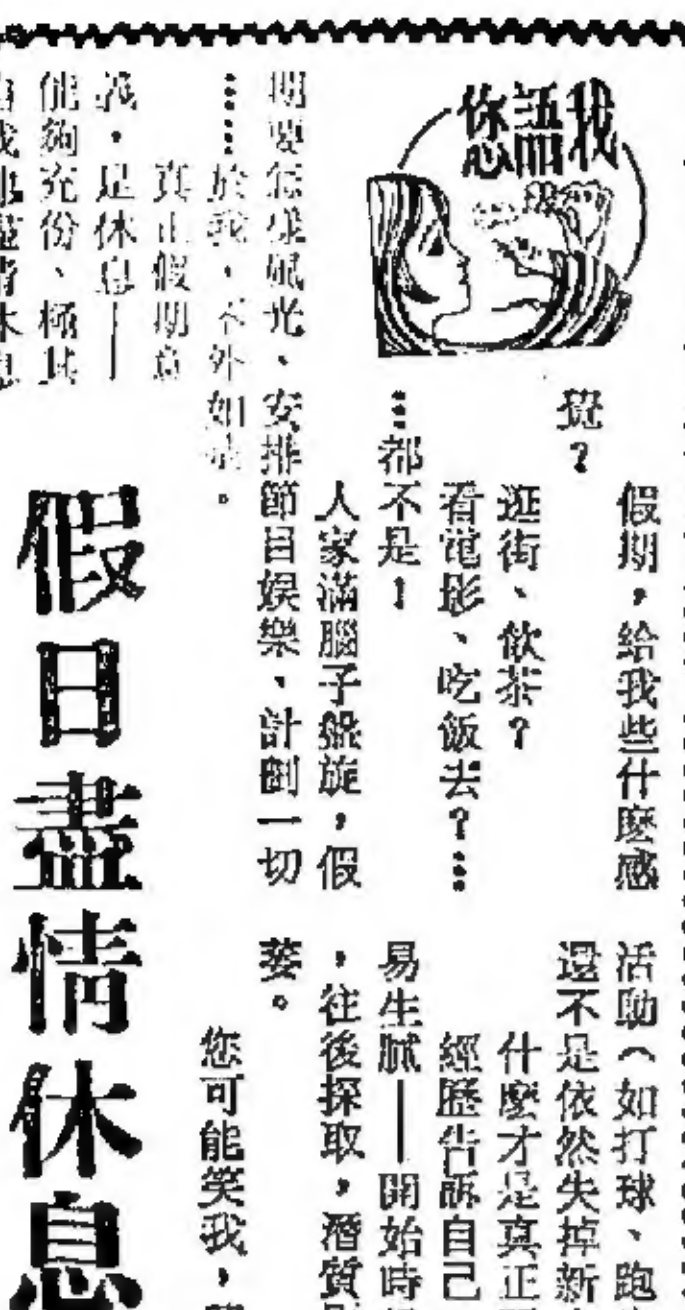 我語您
假日盡情休息
假期，給我些什麼感
覺？
逛街、飲茶？
看電影、吃飯去？…
…都不是！
人家滿腦子盤旋，假
期要怎樣風光、安排節目娛樂、計劃一切
……於我，不外如是。
真正假期意
義，是休息——
能夠充份、極其
活助（如打球、跑
還不是依然失掉新
什麼才是真正
經歷告訴自己
易生膩——開始時
，往後採取，潛質
萎。
您可能笑我，